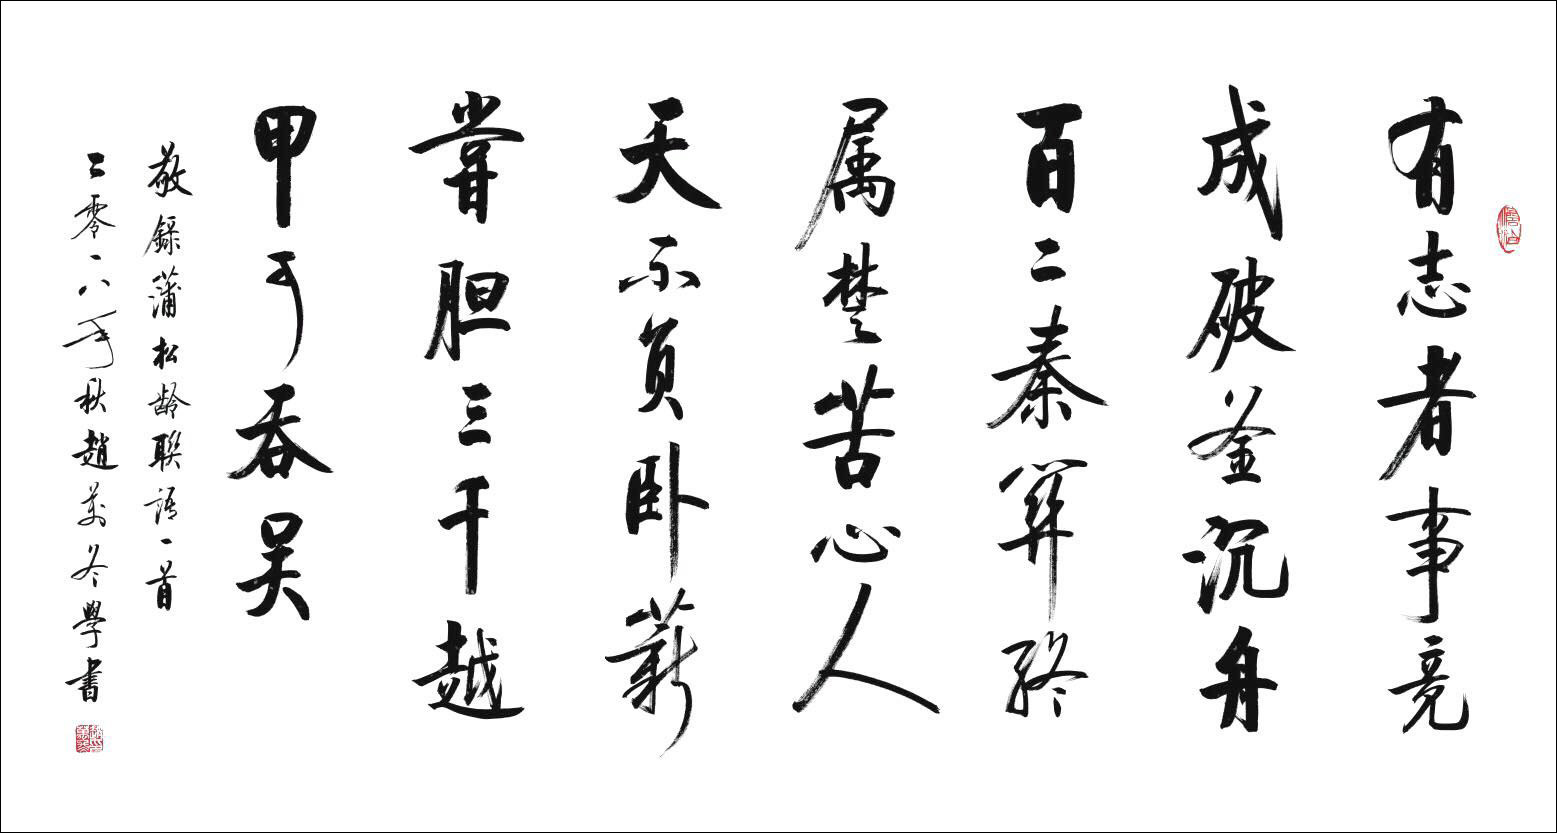 有志者事竟
成破釜沉舟
百二秦関终
属楚苦心人
天不負卧薪
嘗胆三千越
甲可吞吴
敬録蒲松龄聯语一首
二零一八年秋趙萬冬學書